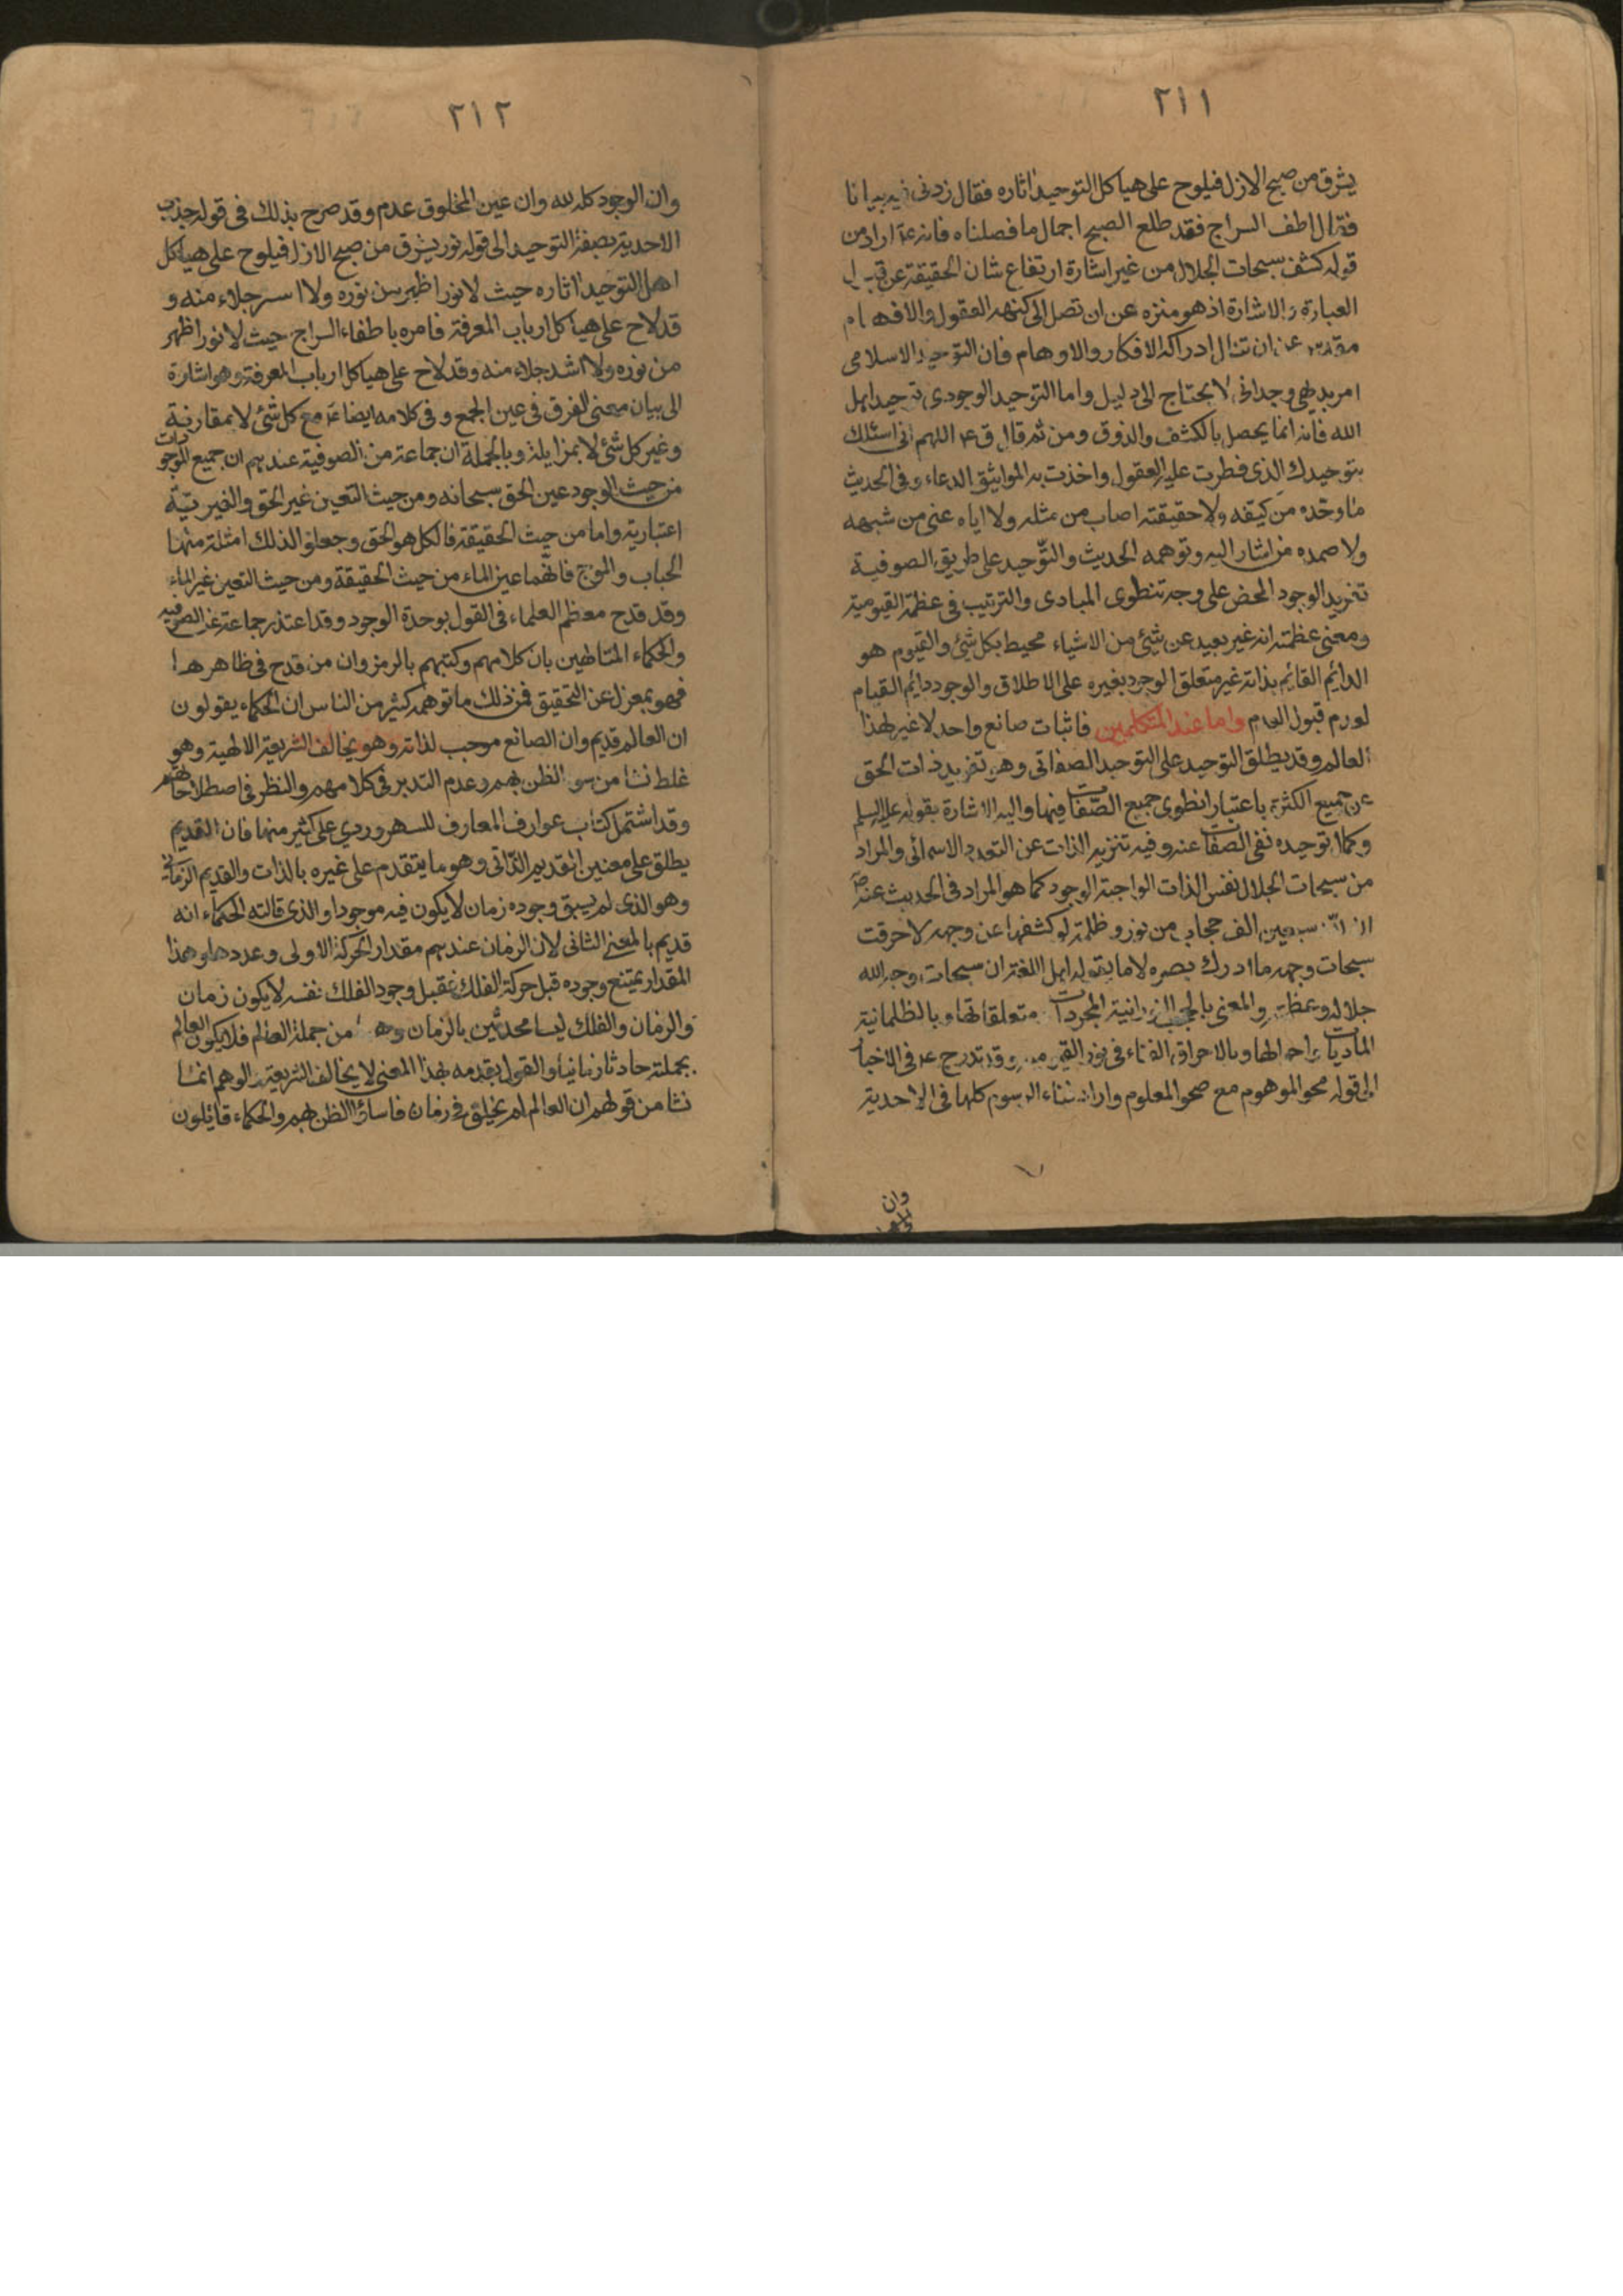 ٢١١
يشرق من صبح الازل فيلوح على هياكل التوحيد اثاره فقال زدنى فيه بيانا
فقال اطف السراج فقد طلع الصبح اجمال ما فصلناه فانه ع اراد من
قوله كشف سبحات الجلال من غير اشارة ارتفاع شان الحقيقة عن
العبارة والاشارة اذ هو منزه عن ان تصل الى كنهه العقول والافهام
عن ان تنال ادراكه الافكار والاوهام فان التوحيد الاسلامى
امر بديهى وجدانى لا يحتاج الى دليل واما التوحيد الوجودى توحيد اهل
الله فانه انما يحصل بالكشف والذوق ومن ثم قال ق ع اللهم انى اسئلك
بتوحيدك الذى فطرت عليه العقول واخذت به المواثيق الدعاء وفى الحديث
ما وحّده من كيفه ولا حقيقته اصاب من مثله ولا اياه عنى من شبهه
ولا صمده من اشار اليه وتوهمه الحديث والتّوحيد على طريق الصوفية
تفريد الوجود المحض على وجه تنطوى المبادى والترتيب فى عظمة القيومية
ومعنى عظمته انه غير بعيد عن شئ من الاشياء محيط بكل شئ والقيوم هو
الدائم القائم بذاته غير متعلق الوجود بغيره على الاطلاق والوجود دايم القيام
قبول العدم واما عند المتكلمين فاثبات صانع واحد لا غير لهذا
العالم وقد يطلق التوحيد على التوحيد الصفاتى وهو تفريد ذات الحق
عن جميع الكثرة باعتبار انطوى جميع الصّفات فيها واليه الاشارة بقوله عليه السلم
وكمال توحيده نفى الصفات عنه وفيه تنزيه الذات عن التعدد الاسمائى والمراد
من سبحات الجلال نفس الذات الواجبة الوجود كما هو المراد فى الحديث عنه ص
ان لله سبعين الف حجاب من نور وظلمة لو كشفها عن وجهه لاحرقت
سبحات وجهه ما ادرك بصره لا ما يقوله اهل اللغة ان سبحات وجه الله
جلاله وعظمته والمعنى بالحجب النورانية المجردات متعلقاتها وبالظلمانية
الماديات واحوالها وبالاحراق الفناء فى نور وقد تدرج ع فى الاخبار
الى قوله محو الموهوم مع صحو المعلوم واراد فناء الرسوم كلها فى الاحدية
وان
٢١٢
وان الوجود كله لله وان عين المخلوق عدم وقد صرح بذلك فى قوله جذب
الاحدية بصفة التوحيد الى قوله نور يشرق من صبح الازل فيلوح على هياكل
اهل التوحيد اثاره حيث لا نور اظهر من نوره ولا جلاء منه و
قد لاح على هياكل ارباب المعرفة فامره باطفاء السراج حيث لا نور اظهر
من نوره ولا اشد جلاء منه وقد لاح على هياكل ارباب المعرفة وهو اشارة
الى بيان معنى الفرق فى عين الجمع و فى كلامه ايضا ع مع كل شئ لا بمقارنة
وغير كل شئ لا بمزايلة وبالجملة ان جماعة من الصوفية عندهم ان جميع الموجودات
من حيث الوجود عين الحق سبحانه ومن حيث التعين غير الحق والغيريّة
اعتبارية واما من حيث الحقيقة فالكل هو الحق وجعلوا لذلك امثلة منها
الحباب والموج فانّهما عين الماء من حيث الحقيقة ومن حيث التعين غير الماء
وقد قدح معظم العلماء فى القول بوحدة الوجود وقد اعتذر جماعة عن الصوفيه
والحكماء المتالهين بان كلامهم وكتبهم بالرمز وان من قدح فى ظاهرها
فهو بمعزل عن التحقيق فمن ذلك ما توهمه كثير من الناس ان الحكماء يقولون
ان العالم قديم وان الصانع موجب لذاته وهو يخالف الشريعة الالهية وهو
غلط نشا من سوء الظن بهم وعدم التدبر فى كلامهم والنظر فى اصطلاحاتهم
وقد اشتمل كتاب عوارف المعارف للسهروردي على كثير منها فان القديم
يطلق على معنيين القديم الذّاتى وهو ما يتقدم على غيره بالذات والقديم الزمانى
وهو الذى لم يسبق وجوده زمان لا يكون فيه موجودا والذى قالته الحكماء انه
قديم بالمعنى الثانى لان الزمان عندهم مقدار الحركة الاولى وعددها وهذا
المقدار يمتنع وجوده قبل حركة الفلك فقبل وجود الفلك نفسه لا يكون زمان
والزمان والفلك ليسا محدثين بالزمان من جملة العالم فلا يكون العالم
بجملته حادثا زمانيا والقول بقدمه بهذا المعنى لا يخالف الشريعة والوهم انما
نشا من قولهم ان العالم لم يخلق فى زمان فاساؤا الظن بهم والحكماء قائلون